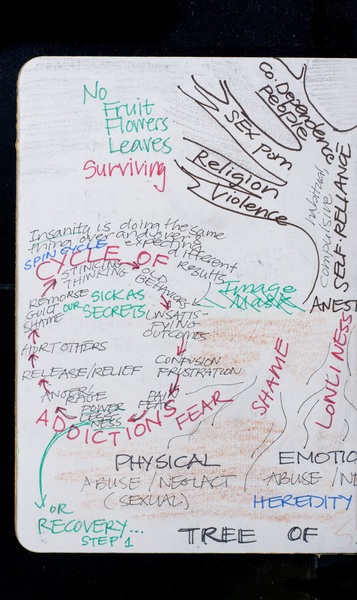 No
Fruit
Flowers
Leaves
Surviving
Co. Dependens
People
SEX Porn
Religion
Violence
unnatural,
compulsive
SELF-RELIANCE
Insanity is doing the same
thing over and over &
expecting
different
results
SPIN CYCLE
CYCLE OF
STINKING
THINKING
OLD
BEHAVIORS
REMORSE
GUILT
SHAME
OUR SICK AS
SECRETS
UNSATIS-
FYING
OUTCOMES
Image
Mask
ANEST
HURT OTHERS
CONFUSION
FRUSTRATION
RELEASE/RELIEF
ANGER/
RAGE
POWER
LESS
NESS
PAIN
ADDICTIONS
FEAR
SHAME
LONLINESS
PHYSICAL
ABUSE/NEGLACT
(SEXUAL)
EMOTIO
ABUSE/NE
HEREDITY
OR
RECOVERY...
STEP 1
TREE OF